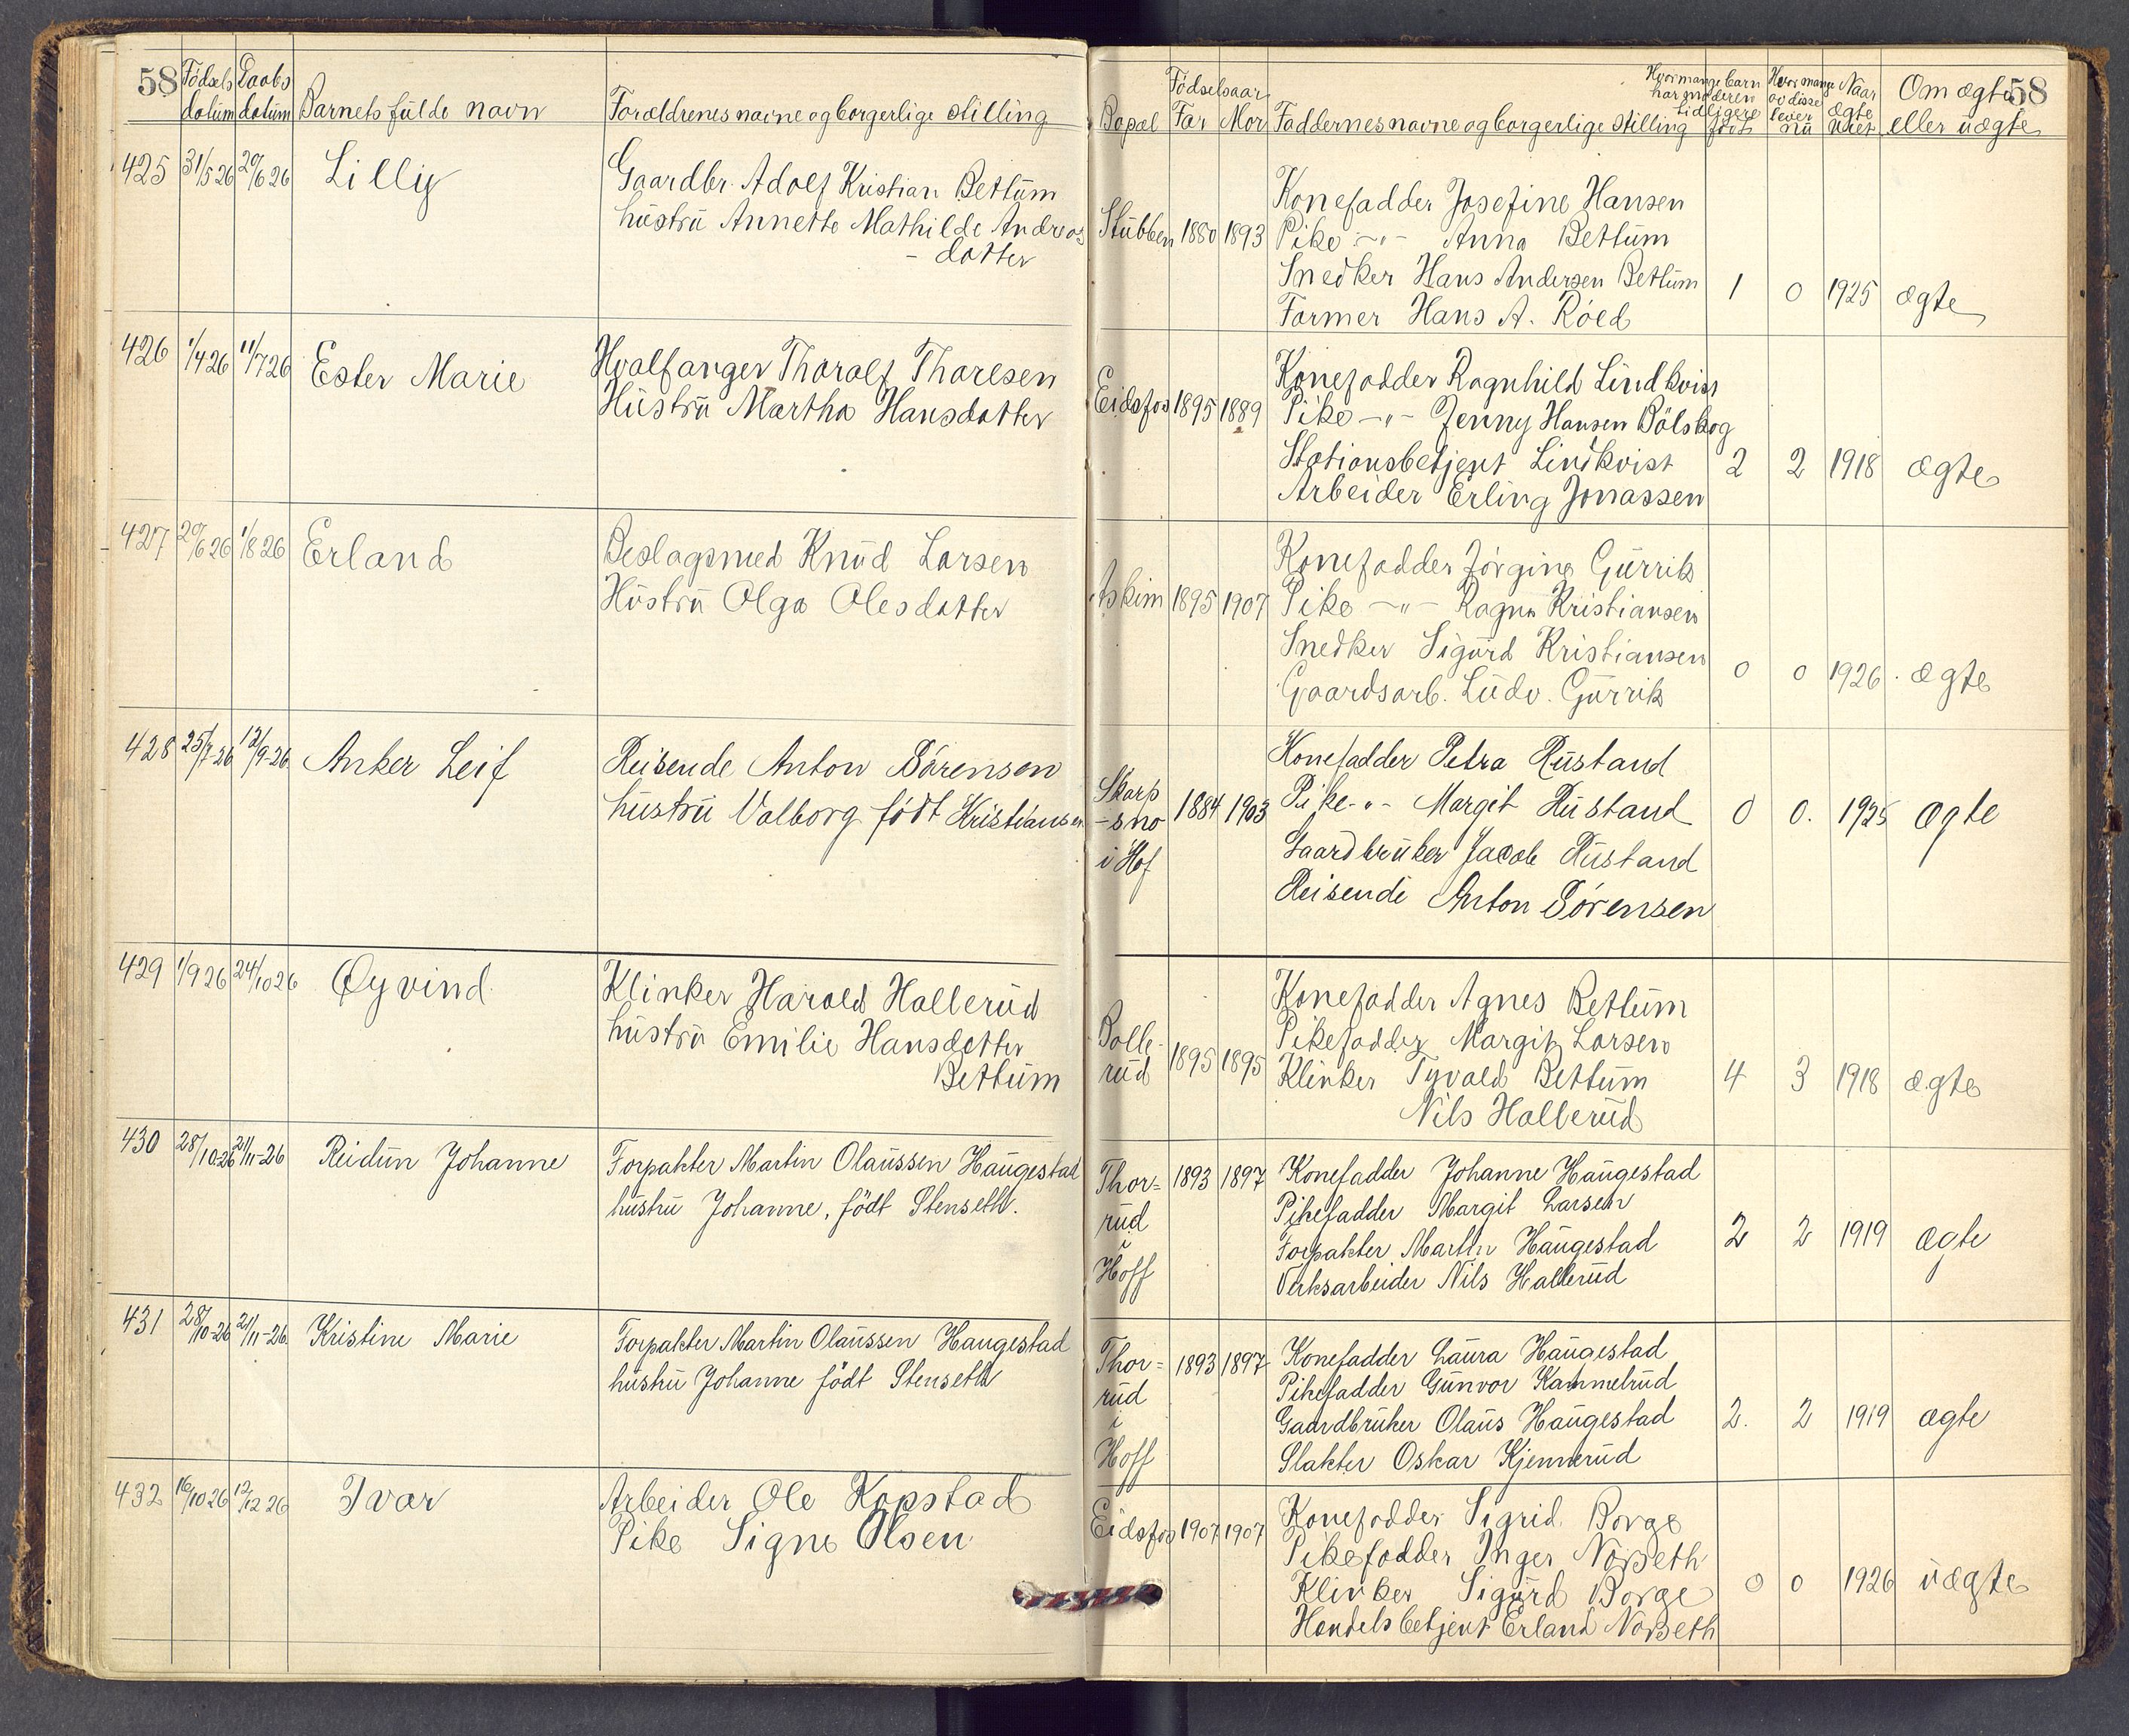 58
Fødsels datum
Daabs datum
Barnets fulde navn
Forældrenes navne og borgerlige stilling
425 31/5 26 20/6 26 Lilly
Gaardbr. Adolf Kristian Bettum
hustru Annette Mathilde Andreas
- datter
426 1/4 26 11/7 26 Ester Marie
Hvalfanger Tharalf Tharlsen
Hustru Martha Hansdatter
427 20/6 26 1/8 26 Erland
Beslagsmed Knud Larsen
Hustru Olga Olesdatter
428 25/7-26 12/9-26 Anker Leif
Reisende Anton Sørensen
hustru Valborg født Kristiansen
429 1/9 26 24/10 26 Øyvind
Klinker Harald Hallerud
hustru Emilie Hansdatter
Bettum
430 28/10-26 21/11-26 Reidun Johanne
Forpakter Martin Olaussen Haugestad
hustru Johanne, født Stenseth.
431 28/10-26 21/11-26 Kristine Marie
Forpakter Martin Olaussen Haugestad
hustru Johanne født Stenseth
432 16/10 26 12/12 26 Ivar
Arbeider Ole Kopstad
Pike Signe Olsen
58
Bopæl
Fødselsaar
Far Mor
Faddernes navne og borgerlige stilling
Hvor mange barn har moderen tidligere født
Hvor mange av disse lever nu
Naar ægte viet
Om ægte eller uægte
Stubben 1880 1893
Konefadder Josefine Hansen
Pike -"- Anna Bettum
Snedker Hans Andersen Bettum
Former Hans A. Röed
1 0 1925 ægte
Eidsfos 1895 1889
Konefadder Ragnhild Lindkvist
Pike -"- Jenny Hansen Bölskog
Stationsbetjent Lindkvist
Arbeider Erling Jonassen
2 2 1918 ægte
Askim 1895 1907
Konefadder Jörgine Gurrik
Pike -"- Ragna Kristiansen
Snedker Sigurd Kristiansen
Gaardsarb. Ludv. Gurrik
0 0 1926. ægte
Skarp
-sno
i Hof
1884 1903
Konefadder Petra Rustand
Pike -"- Margit Rustand
Gaardbruker Jacob Rustand
Reisende Anton Sørensen
0 0. 1925 ægte
Bolle-
rud
1895 1895
Konefadder Agnes Bettum
Pikefadder Margit Larsen
Klinker Tyvald Bettum
Nils Hallerud
4 3 1918 ægte
Thor=
rud
i
Hoff
1893 1897
Konefadder Johanne Haugestad
Pikefadder Margit Larsen
Forpakter Martin Haugestad
Verksarbeider Nils Hallerud
2 2 1919 ægte
Thor=
rud
i
Hoff
1893 1897
Konefadder Laura Haugestad
Pikefadder Gunvor Kammelrud
Gaardbruker Olaus Haugestad
Slakter Oskar Kjennerud
2. 2 1919 ægte
Eidsfos 1907 1907
Konefadder Sigrid Borge
Pikefadder Inger Norseth
Klinker Sigurd Borge
Handelsbetjent Erland Norseth
0 0 1926 uægte